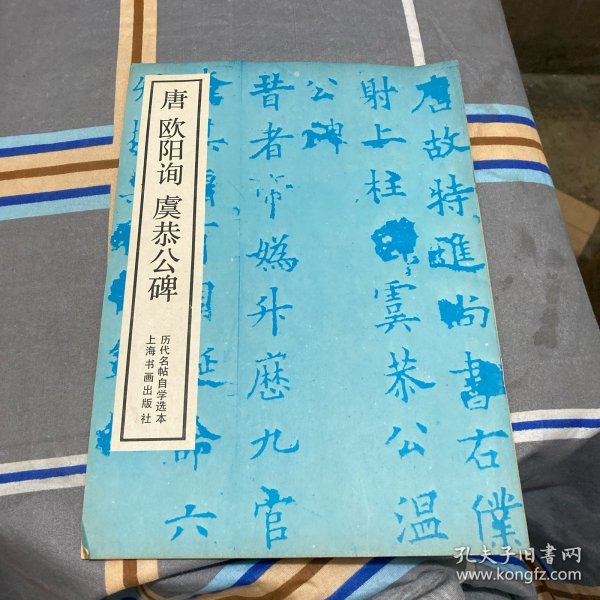 唐 欧阳询 虞恭公碑
历代名帖自学选本
上海书画出版社
唐故特進尚書右僕
射上柱
虞恭公温
公碑
昔者帝媯升歷九官
命六
孔夫子旧书网
www.kongfz.com